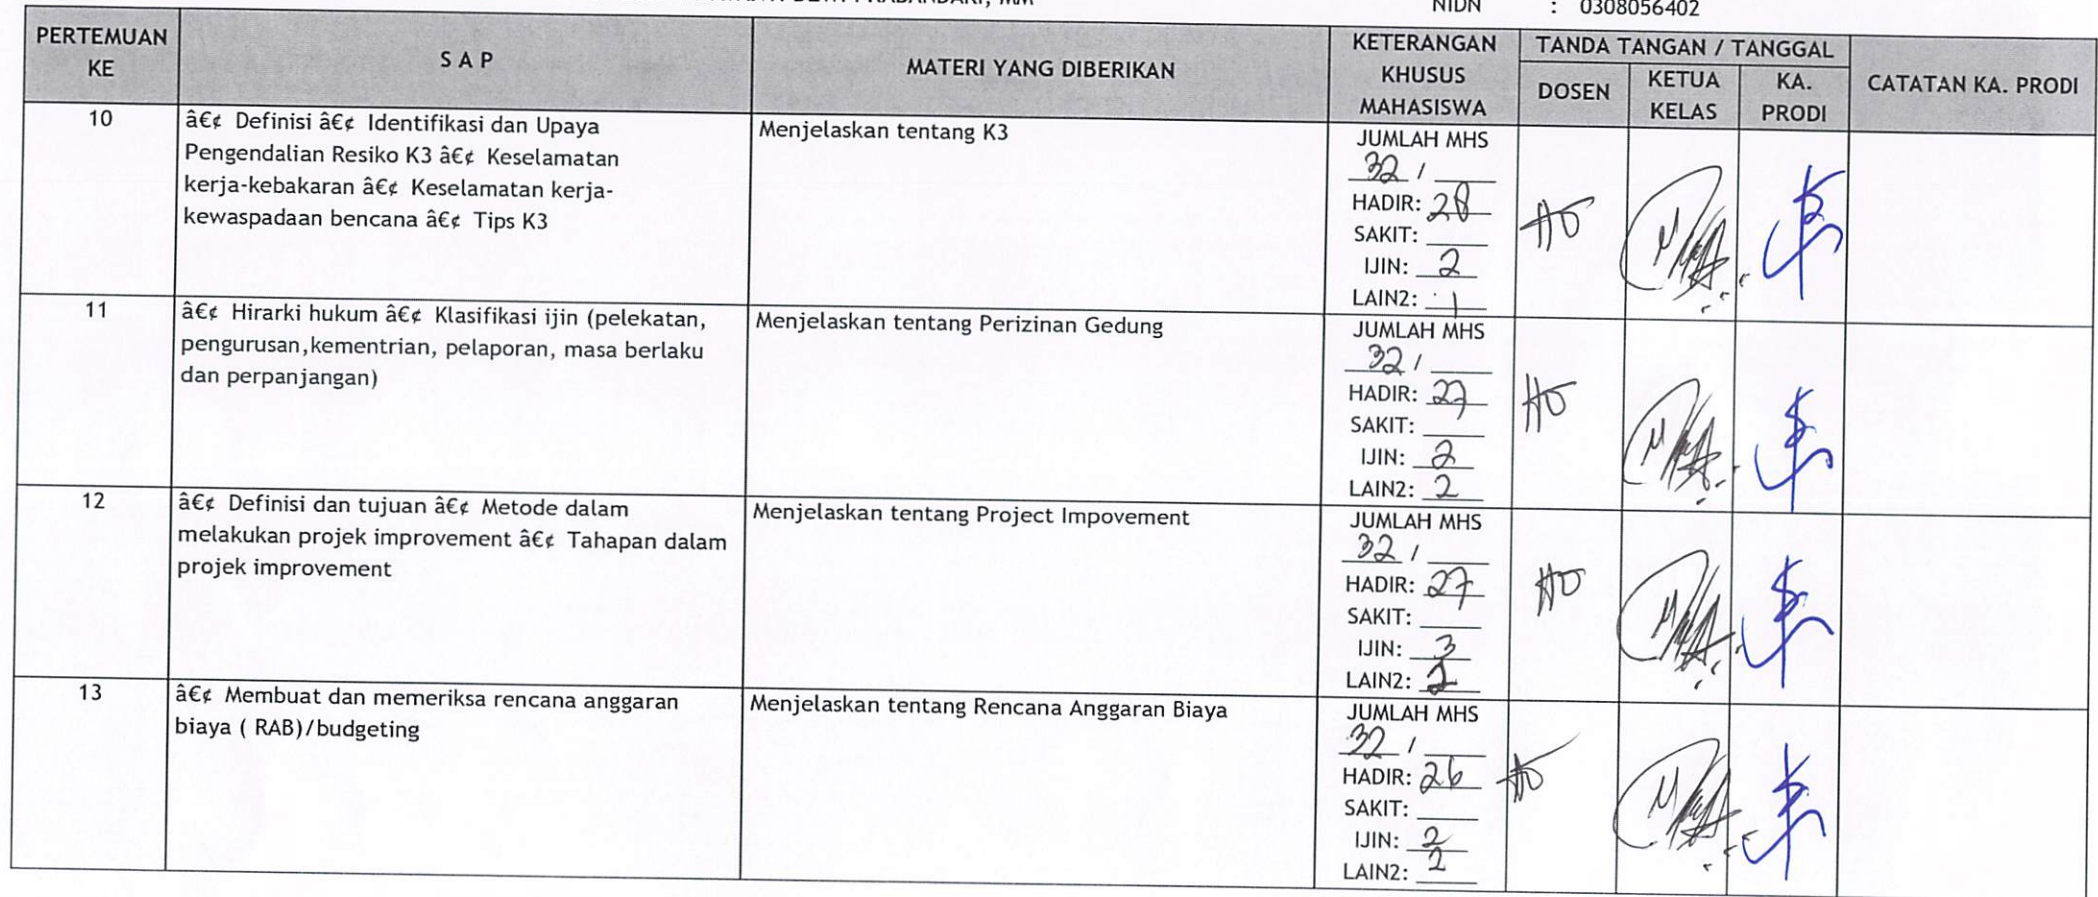 DEWI PRABANDARI, MM
NIDN : 0308056402
PERTEMUAN KE
S A P
MATERI YANG DIBERIKAN
KETERANGAN KHUSUS MAHASISWA
TANDA TANGAN / TANGGAL
DOSEN
KETUA KELAS
KA. PRODI
CATATAN KA. PRODI
10
â€¢ Definisi â€¢ Identifikasi dan Upaya
Pengendalian Resiko K3 â€¢ Keselamatan
kerja-kebakaran â€¢ Keselamatan kerja-
kewaspadaan bencana â€¢ Tips K3
Menjelaskan tentang K3
JUMLAH MHS
32 /
HADIR: 28
SAKIT:
IJIN: 2
LAIN2: 1
11
â€¢ Hirarki hukum â€¢ Klasifikasi ijin (pelekatan,
pengurusan,kementrian, pelaporan, masa berlaku
dan perpanjangan)
Menjelaskan tentang Perizinan Gedung
JUMLAH MHS
32 /
HADIR: 27
SAKIT:
IJIN: 2
LAIN2: 2
12
â€¢ Definisi dan tujuan â€¢ Metode dalam
melakukan projek improvement â€¢ Tahapan dalam
projek improvement
Menjelaskan tentang Project Impovement
JUMLAH MHS
32 /
HADIR: 27
SAKIT:
IJIN: 3
LAIN2: 2
13
â€¢ Membuat dan memeriksa rencana anggaran
biaya ( RAB)/budgeting
Menjelaskan tentang Rencana Anggaran Biaya
JUMLAH MHS
32 /
HADIR: 26
SAKIT:
IJIN: 2
LAIN2: 2